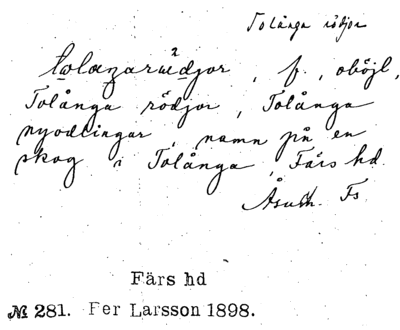 Tolånga rödjor
tωlaŋarωdjor, f., oböjl,
Tolånga rödjor, Tolånga
nyodlingar, namn på en
skog i Tolånga, Färs hd.
Åsum. Fs
Färs hd
№ 281. Per Larsson 1898.